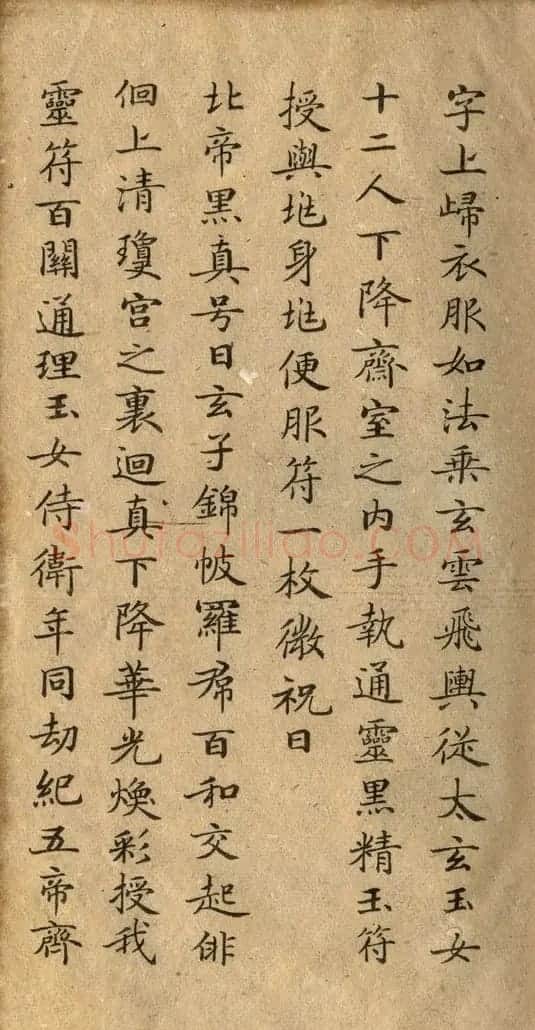 字上歸衣服如法乗玄雲飛輿従太玄玉女
十二人下降齋室之内手執通靈黒精玉符
授與兆身兆便服符一枚微祝曰
北帝黒真号曰玄子錦帔羅帬百和交起俳
佪上清瓊宮之裏迴真下降華光煥彩授我
靈符百關通理玉女侍衛年同劫紀五帝齊
shufaziliao.COM